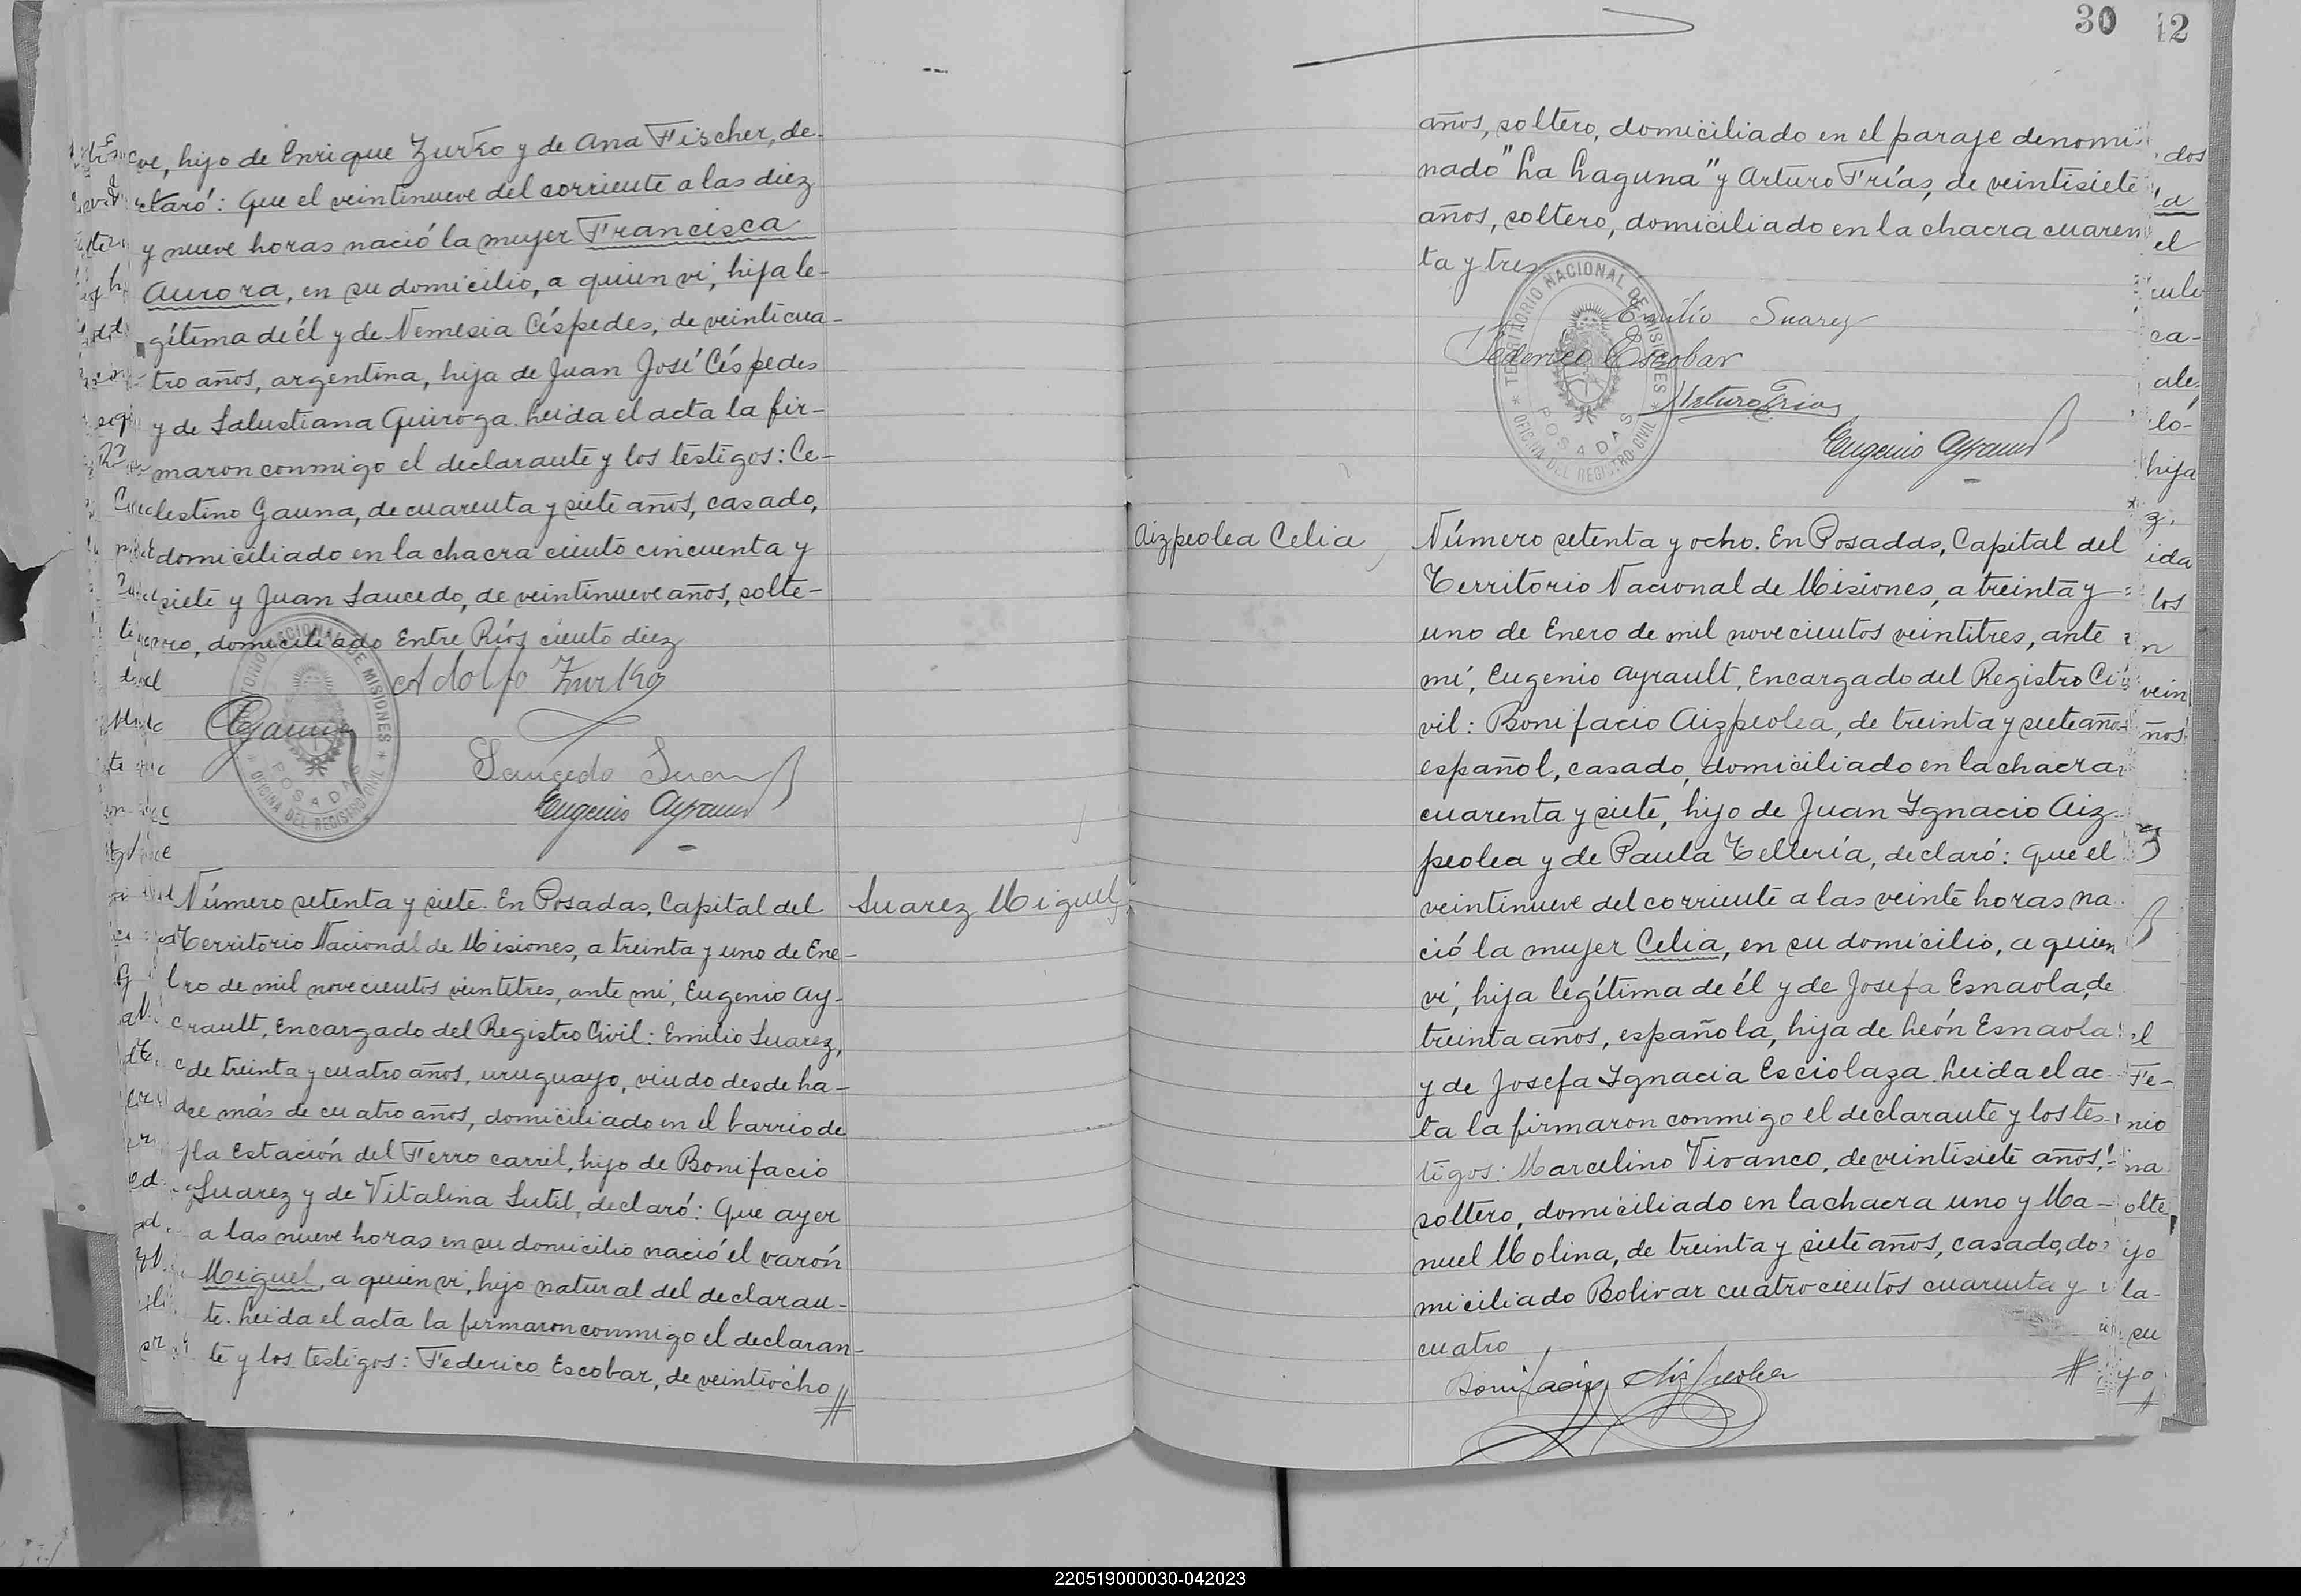 ve, hijo de Enrique Zurko y de Ana Fischer, de-
claró: Que el veintinueve del corriente a las diez
y nueve horas nació la mujer Francisca
Aurora, en su domicilio, a quien vi, hija le-
gítima de él y de Nemesia Céspedes, de veinticua-
tro años, argentina, hija de Juan José Céspedes
y de Salustiana Quiroga. Leida el acta la fir-
maron conmigo el declarante y los testigos: Ce-
lestino Gauna, de cuarenta y siete años, casado,
domiciliado en la chacra ciento cincuenta y
siete y Juan Saucedo, de veintinueve años, solte-
ro, domiciliado Entre Ríos ciento diez
Adolfo Zurko
CGauna
Saucedo Juan
Eugenio Ayrault
TERRITORIO NACIONAL DE MISIONES
POSADAS
OFICINA DEL REGISTRO CIVIL
Suarez Miguel
Número setenta y siete. En Posadas, Capital del
Territorio Nacional de Misiones, a treinta y uno de Ene-
ro de mil novecientos veintitres, ante mí, Eugenio Ay-
rault, Encargado del Registro Civil: Emilio Suarez,
de treinta y cuatro años, uruguayo, viudo desde ha-
ce más de cuatro años, domiciliado en el barrio de
la Estación del Ferro carril, hijo de Bonifacio
Suarez y de Vitalina Sutil, declaró: Que ayer
a las nueve horas en su domicilio nació el varón
Miguel, a quien vi, hijo natural del declaran-
te. Leida el acta la firmaron conmigo el declaran-
te y los testigos: Federico Escobar, de veintiocho
30 12
años, soltero, domiciliado en el paraje denomi-
nado "La Laguna" y Arturo Frías, de veintisiete
años, soltero, domiciliado en la chacra cuaren
ta y tres
Emilio Suarez
Federico Escobar
Arturo Frias
Eugenio Ayrault
TERRITORIO NACIONAL DE MISIONES
POSADAS
OFICINA DEL REGISTRO CIVIL
Aizpeolea Celia
Número setenta y ocho. En Posadas, Capital del
Territorio Nacional de Misiones, a treinta y
uno de Enero de mil novecientos veintitres, ante
mí, Eugenio Ayrault, Encargado del Registro Ci
vil: Bonifacio Aizpeolea, de treinta y siete años
español, casado, domiciliado en la chacra
cuarenta y siete, hijo de Juan Ignacio Aiz-
peolea y de Paula Tellería, declaró: Que el
veintinueve del corriente a las veinte horas na
ció la mujer Celia, en su domicilio, a quien
vi, hija legítima de él y de Josefa Esnaola, de
treinta años, española, hija de León Esnaola
y de Josefa Ignacia Esciolaza. Leida el ac-
ta la firmaron conmigo el declarante y los tes-
tigos: Marcelino Vivanco, de veintisiete años,
soltero, domiciliado en la chacra uno y Ma-
nuel Molina, de treinta y siete años, casado, do
miciliado Bolivar cuatrocientos cuarenta y
cuatro
Bonifacio Aizpeolea
dos
a
el
culi
ca-
ale
ló-
hija
z.
ida
los
n
vein
ños
el
Fe-
nio
na
olte
ijo
la-
su
yo
220519000030-042023